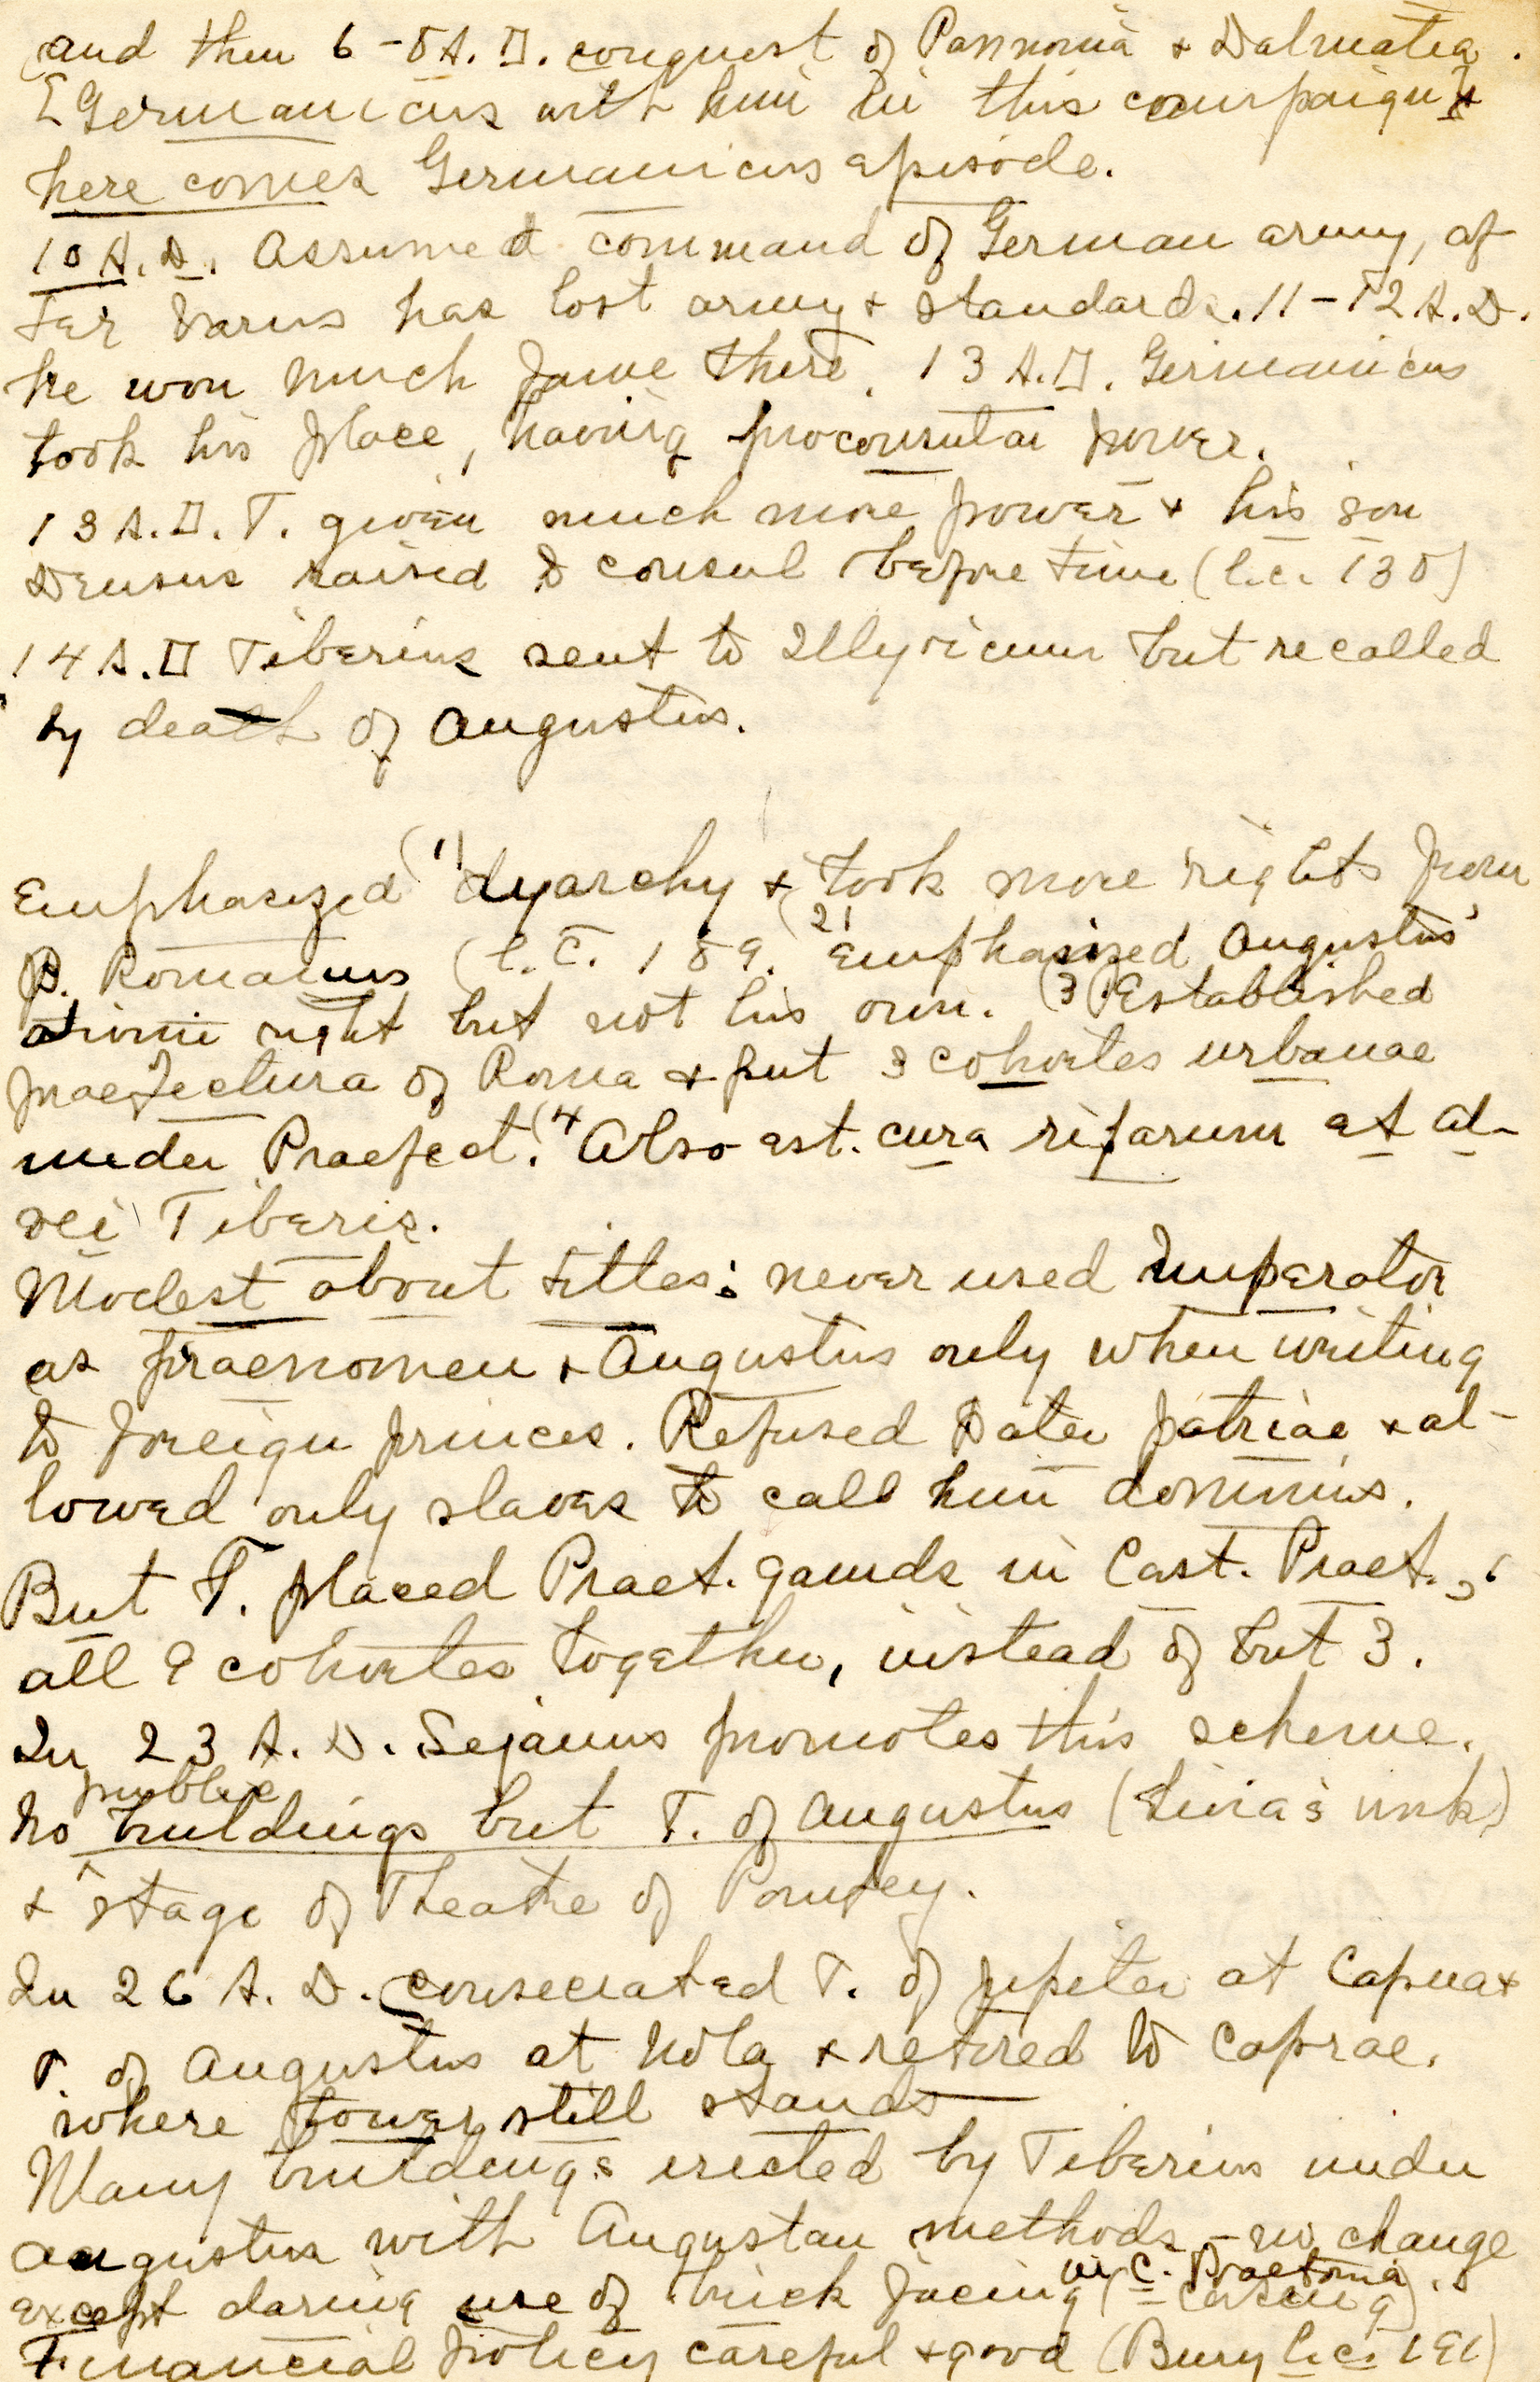 and then 6-8 A.D. conquest of Pannonia & Dalmatia.
[Germanicus with him in this campaign] &
here comes Germanicus episode.
10 A.D. Assumed command of German army, af
ter Varus has lost army & standards. 11-12 A.D.
he won much fame there. 13 A.D. Germanicus
took his place, having proconsular power.
13 A.D. T. given much more power & his son
Drusus raised to consul before time (l.c. 138)
14 A.D Tiberius sent to Illyricum but recalled
by death of Augustus.
Emphasized (1) dyarchy & took more rights from
P. Romanus (l.c. 189. (2) Emphasized Augustus'
divine right but not his own. (3) Established
praefectura of Roma & put 3 cohortes urbanae
under Praefect. (4 Also est. cura riparum et al-
vei Tiberis.
Modest about titles: never used Imperator
as praenomen & Augustus only when writing
to foreign princes. Refused Pater patriae & al-
lowed only slaves to call him dominus.
But T. placed Praet. gaurds in Cast. Praet.,
all 9 cohortes together, instead of but 3.
In 23 A.D. Sejanus promotes this scheme.
No public buildings but T. of Augustus (Livia's work)
& stage of Theatre of Pompey.
In 26 A.D. consecrated T. of Jupiter at Capua &
T. of Augustus at Nola & retired to Caprae.
where tower still stands
Many buildings erected by Tiberius under
Augustus with Augustan methods - no change
except daring use of brick facing (= casing) in C. Praetoria.
Financial policy careful & good (Bury l.c. 191)